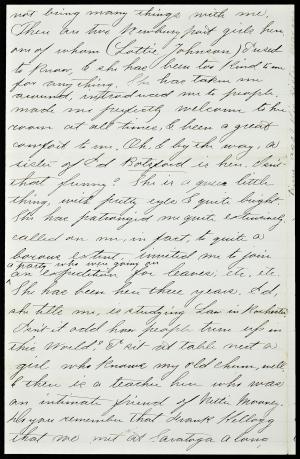 not bring many things with me.
There are two Newburyport girls here,
one of whom (Lottie Johnson) I used
to know, & she has been too kind to me
for anything. She has taken me
around, introduced me to people,
made me perfectly welcome to her
room at all times, & been a great
comfort to me. Oh, & by the way, a
sister of Ed Botsford is here. Isn't
that funny? She is a queer little
thing, with pretty eyes & quite bright.
She has patronized me quite extensively,
called on me, in fact, to quite a
extent, invited me to join
a party who were going on
an expedition for leaves, etc. etc.
She has been here three years. Ed,
she tells me, is studying Law in Rochester.
Isn't it odd how people turn up in
this World? I sit at table next a
girl who knows my old chum, well,
& there is a teacher here who was
an intimate friend of Nettie Mooney.
Do you remember that Frank Kellogg
that we met at Saratoga along